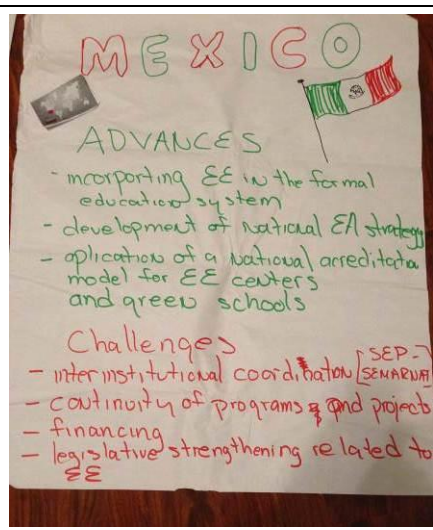 MEXICO
ADVANCES
- incorporting EE in the formal
education system
- development of National EA strategy
- aplication of a National acreditatio
model for EE centers
and green schools
Challenges
- interinstitutional coordination [SEP-
SEMARNAT]
- continuity of programs and projects
- financing
- legislative strengthening related to
EE